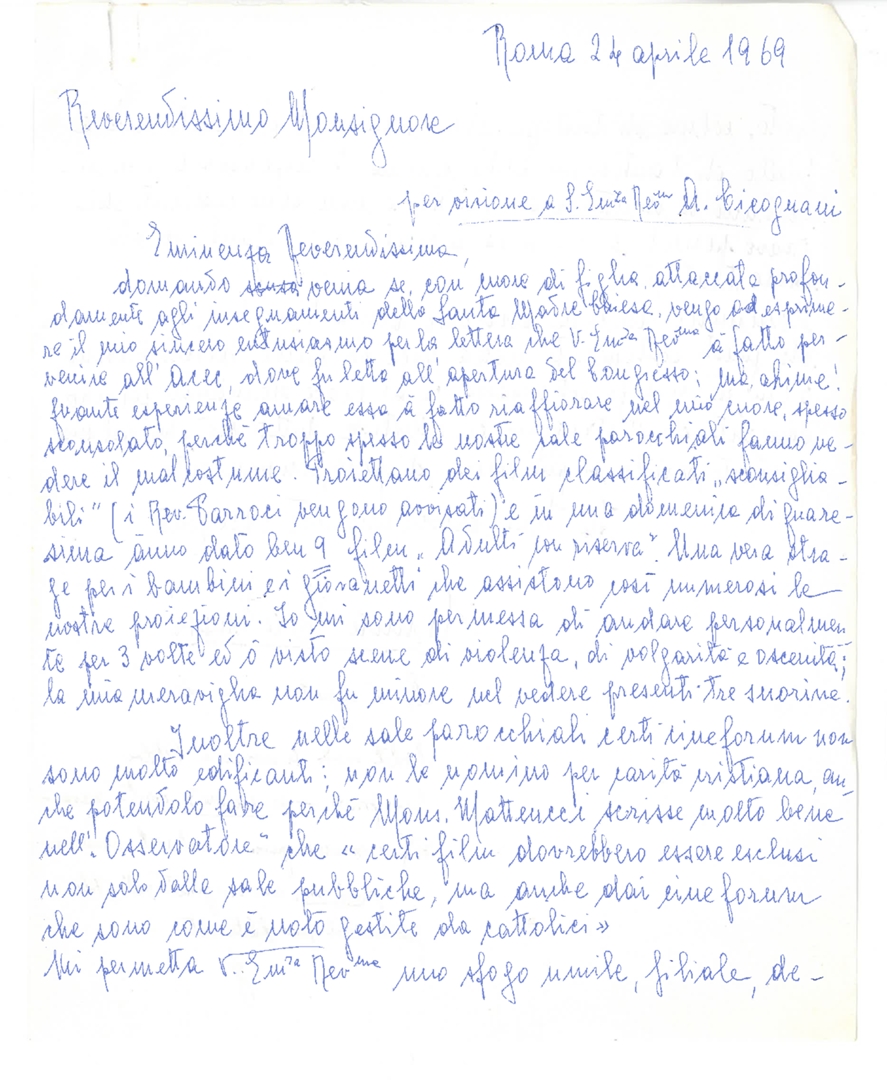 Roma 24 aprile 1969
Reverendissimo Monsignore
per visione a S. Emza Revma A. Cicognani
Eminenza Reverendissima,
domando venia se, con cuore di figlia attaccata profon-
damente agli insegnamenti della Santa Madre Chiesa, vengo ad esprime-
re il mio sincero entusiasmo per la lettera che V. Emza Revma à fatto per-
venire all'Acec, dove fu letta all'apertura del Congresso; ma, ahimè!
quante esperienze amare essa à fatto riaffiorare nel mio cuore, spesso
sconsolato, perchè troppo spesso le nostre sale parocchiali fanno ve-
dere il malcostume. Proiettano dei film classificati „sconsiglia-
bili" (i Rev. Parroci vengono avvisati) e in una domenica di quare-
sima ànno dato ben 9 film „Adulti con riserva". Una vera stra-
ge per i bambini e i giovanetti che assistono così numerosi le
nostre proiezioni. Io mi sono permessa di andare personalmen
te per 3 volte ed ò visto scene di violenza, di volgarità e oscenità;
la mia meraviglia non fu minore nel vedere presenti tre suorine.
Inoltre nelle sale parocchiali certi cineforum non
sono molto edificanti; non le nomino per carità cristiana, an-
che potendolo fare perchè Mons. Matteucci scrisse molto bene
nell'„Osservatore" che « certi film dovrebbero essere esclusi
non solo dalle sale pubbliche, ma anche dai cineforum
che sono come è noto gestite da cattolici »
Mi permetta V. Emza Revma uno sfogo umile, filiale, de-